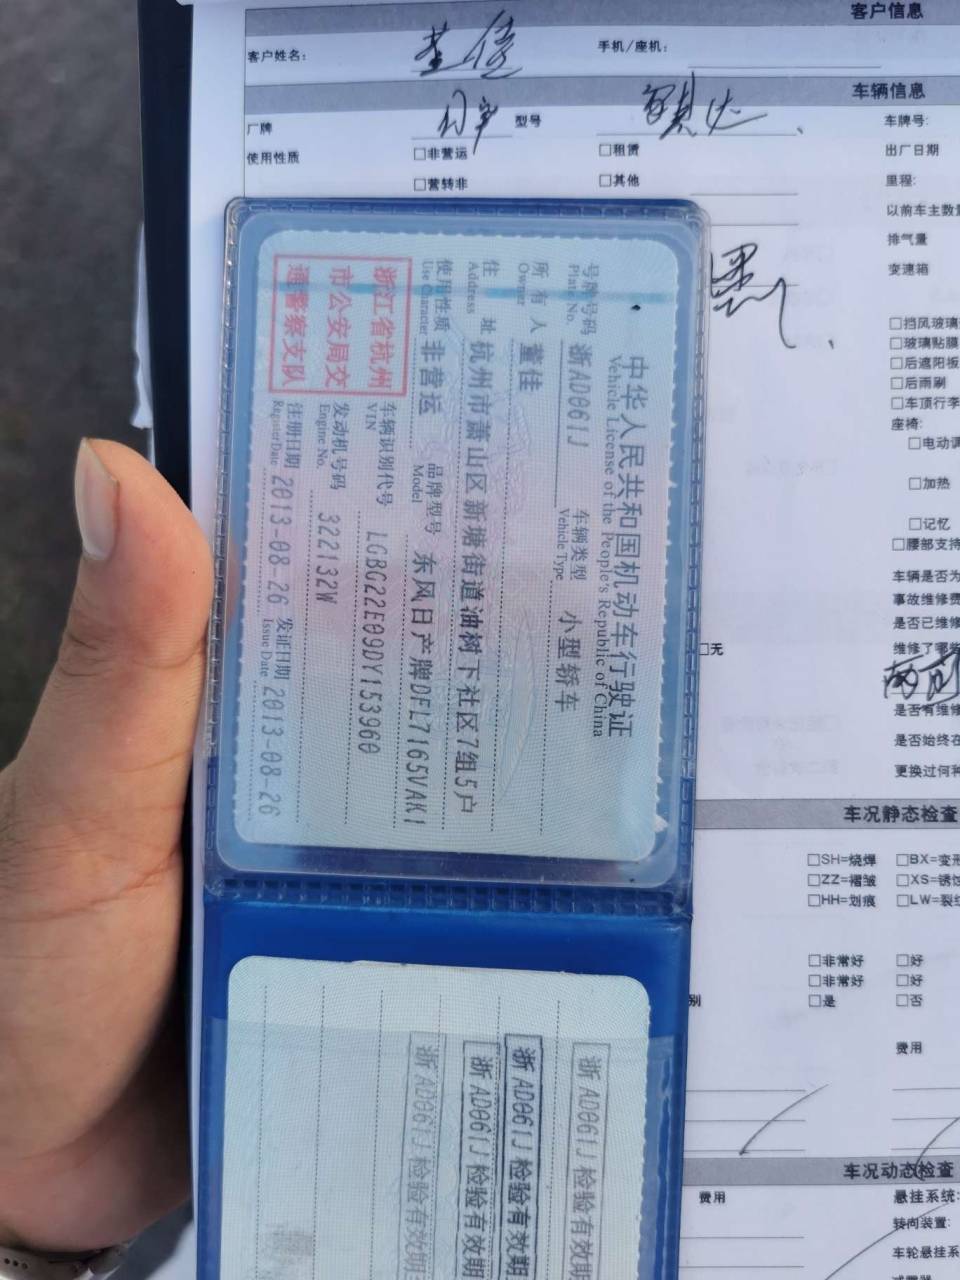 客户信息
客户姓名: 董佳 手机/座机:
车辆信息
厂牌 日产 型号 骐达 车牌号:
使用性质 □非营运 □租赁 出厂日期
□营转非 □其他 里程:
以前车主数量
排气量
变速箱
□挡风玻璃
□玻璃贴膜
□后遮阳板
□后雨刷
□车顶行李
座椅:
□电动调
□加热
□记忆
□腰部支持
车辆是否为
事故维修费
是否已维修
□无 维修了哪些
是否有维修
是否始终在
更换过何种
车况静态检查
□SH=烧焊 □BX=变形
□ZZ=褶皱 □XS=锈蚀
□HH=划痕 □LW=裂纹
□非常好 □好
□非常好 □好
别 □是 □否
费用
车况动态检查
费用 悬挂系统:
转向装置:
车轮悬挂系
中华人民共和国机动车行驶证
Vehicle License of the People's Republic of China
号牌号码 浙AD061J 车辆类型 小型轿车
Plate No. Vehicle Type
所有人 董佳
Owner
住址 杭州市萧山区新塘街道油树下社区7组5户
Address
使用性质 非营运 品牌型号 东风日产牌DFL7165VAK1
Use Character Model
浙江省杭州
市公安局交
通警察支队
车辆识别代号 LGBG22E09DY153960
VIN
发动机号码 322132W
Engine No.
注册日期 2013-08-26 发证日期 2013-08-26
Register Date Issue Date
浙AD061J检验有效期
浙AD061J检验有效期
浙AD061J检验有效期
浙AD061J检验有效期至